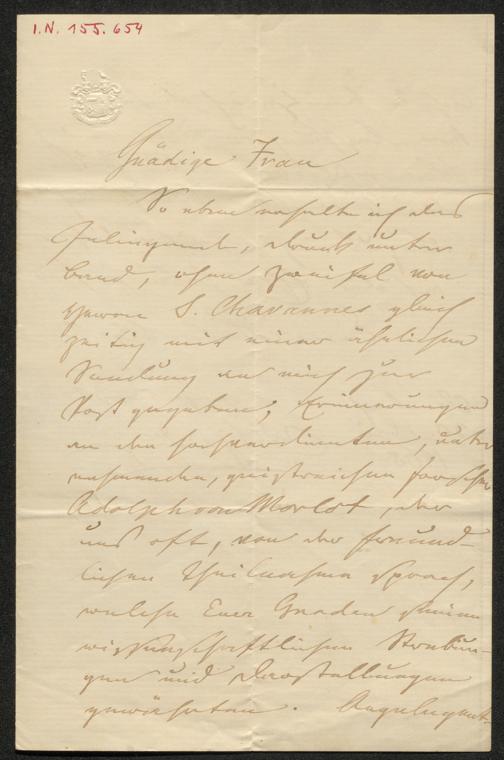 I.N. 155.654
Gnädige Frau
So eben erhalte ich das
Inliegende, durch unter
band, ohne Zweifel von
Herrn S. Chavannes gleich
zeitig mit einer ähnlichen
Sendung an mich zur
Post gegeben; Erinnerungen
an den hochverdienten, unter
nehmenden, geistreichen Forscher
Adolph von Morlot, der
uns oft, von der freund-
lichen Theilnahme sprach,
welche Euer Gnaden seinen
wissenschaftlichen Strebun-
gen und Darstellungen
gewährten.